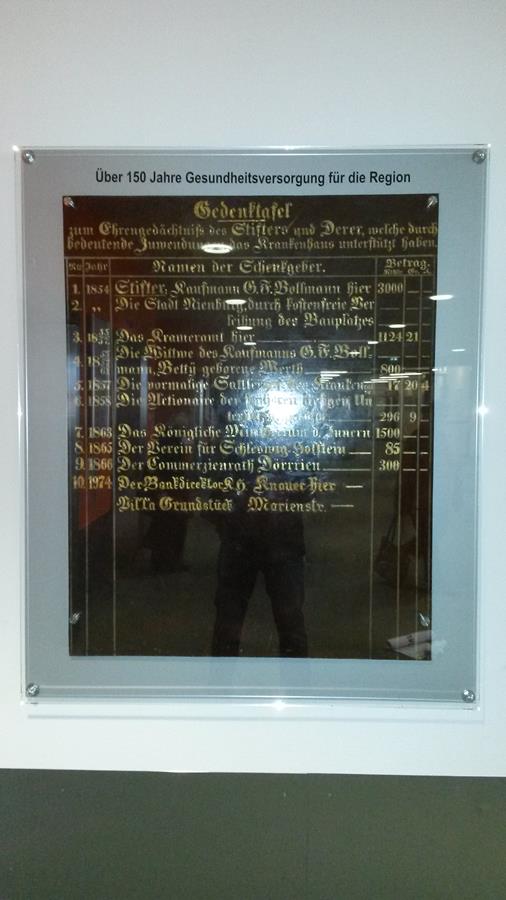 Über 150 Jahre Gesundheitsversorgung für die Region
Gedenktafel
zum Ehrengedächtniß des Stifters und Derer, welche durch
bedeutende Zuwendungen das Krankenhaus unterstützt haben.
No Jahr Namen der Schenkgeber. Betrag.
1. 1854 Stifter, Kaufmann G. F. Bollmann hier 3000 — —
2. „ Die Stadt Nienburg, durch kostenfreie Ver
leihung des Bauplatzes
3. Das Krameramt hier 1124 21 —
4. Die Wittwe des Kaufmanns G. F. Boll-
mann, Betty geborene Werth 800 — —
5. 1857 Die vormalige 17 20 4
6. 1858 Die Actionaire der
296 9 —
7. 1863 Das Königliche Ministerium d. Innern 1500 — —
8. 1865 Der Verein für Schleswig-Holstein — 85 — —
9. 1866 Der Commerzienrath Dörrien — 300 — —
10. 1974 Der Bankdirektor K. H. Knauer hier —
Villa Grundstück Marienstr. —